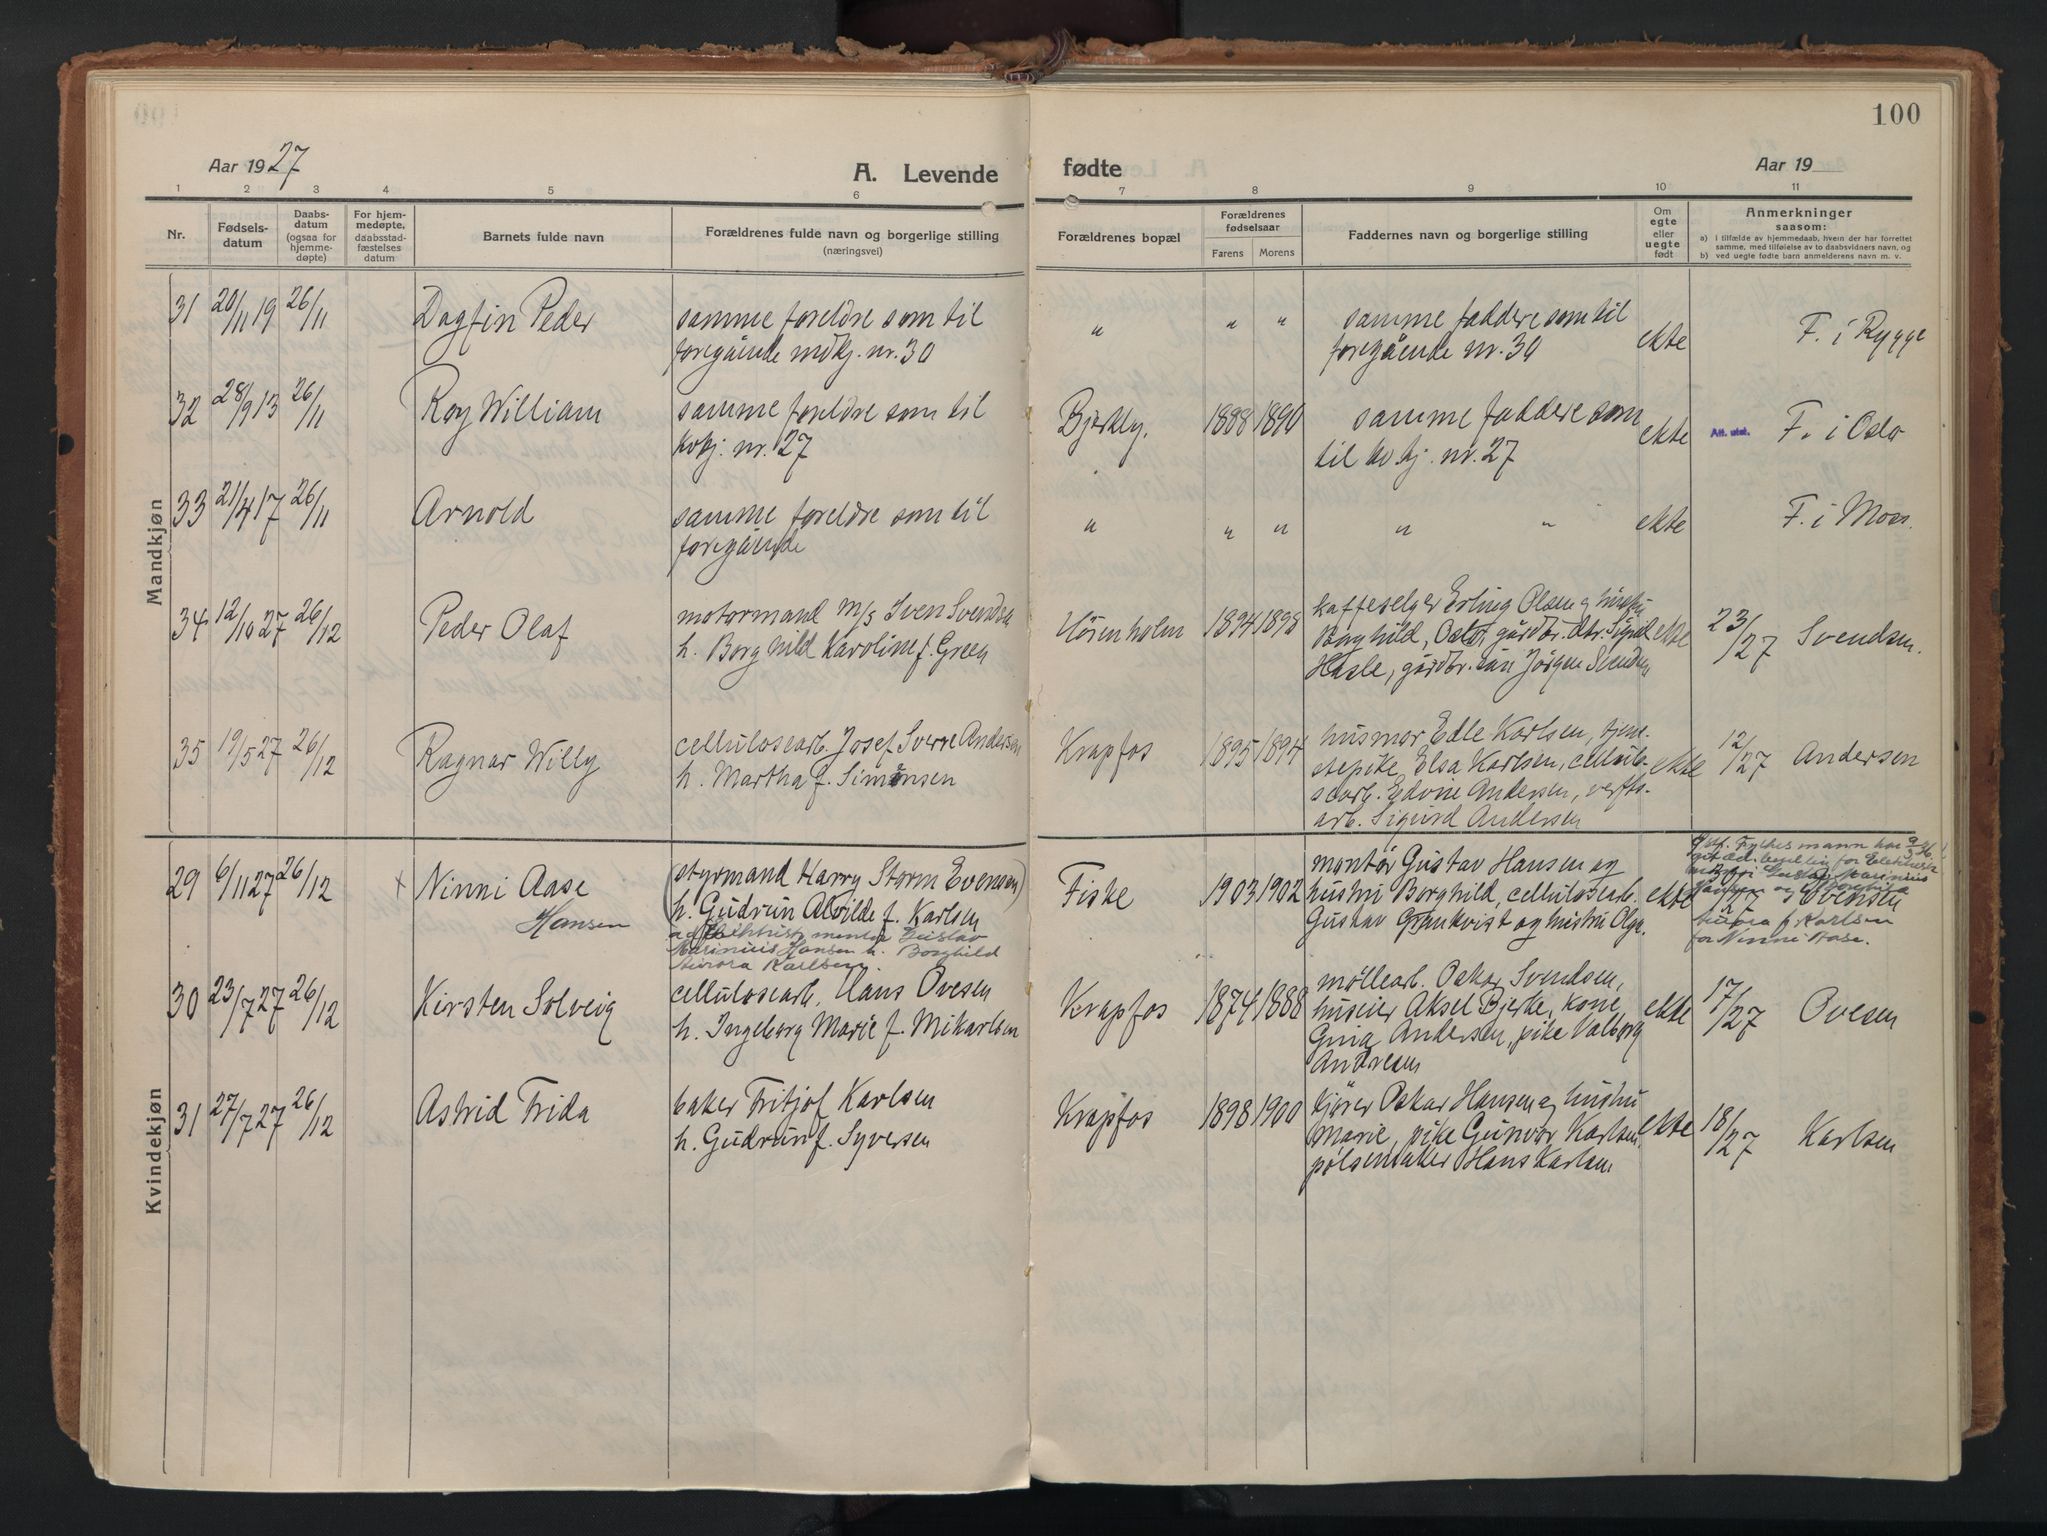 100
Aar 1927
A. Levende
fødte
Aar 19
1 2 3 4 5 6 7 8 9 10 11
Nr.
Fødsels-
datum
Daabs-
datum
(ogsaa for
hjemme-
døpte)
For hjem-
medøpte,
daabsstad-
fæstelses
datum
Barnets fulde navn
Forældrenes fulde navn og borgerlige stilling
(næringsvei)
Forældrenes bopæl
Forældrenes
fødselsaar
Farens Morens
Faddernes navn og borgerlige stilling
Om
egte
eller
uegte
født
Anmerkninger
saasom:
a) I tilfælde av hjemmedaab, hvem der har forrettet
samme, med tilføielse av to daabsvidners navn, og
b) ved uegte fødte barn anmelderens navn m. v.
Mandkjøn
31 20/11 19 26/11 Dagfin Peder
samme foreldre som til
foregående mdkj. nr. 30
" " "
samme faddere som til
foregående nr. 30
ekte F. i Rygge
32 28/9 13 26/11 Roy William
samme foreldre som til
kvkj. nr. 27
Bjerkly. 1888 1890
samme faddere som
til kv.kj. nr. 27
ekte Att. utst. F. i Oslo
33 21/4 17 26/11 Arnold
samme foreldre som til
foregående
" " " " "
ekte F. i Moss.
34 12/10 27 26/12 Peder Olaf
motormand m/s Iven Svendsen
h. Borghild Karoline f. Green
Hösenholm 1894 1898
kaffeselger Erling Olsen og hustru
Borghild, Oslo, gårdbr. dtr. Sigrid
Hasle, gårdbr. sön Jörgen Svendsen
ekte 23/12 27 Svendsen.
35 19/5 27 26/12 Ragnar Willy
cellulosearb. Josef Sverre Andersen
h. Martha f. Simonsen
Krapfos 1895 1894
husmor Edle Karlsen, tjene-
stepike Elsa Karlsen, cellulo-
searb. Edvne Andersen, verfts-
arb. Sigurd Andersen
ekte 12/12 27 Andersen
Kvindekjøn
29 6/11 27 26/12 x Ninni Aase
Hansen
(styrmand Harry Storm Evensen)
h. Gudrun Alvilde f. Karlsen
ad. Elektrisk montör Gustav
Marinius Hansen h. Borghild
Aurora Karlsen.
Fiske 1903 1902
montör Gustav Hansen og
hustru Borghild, cellulosearb.
Gustav Grankvist og hustru Olga.
ekte 27 Evensen
Fylkesmann har
Gustav Marinius
Hansen og Borghild
Aurora f. Karlsen
for Ninni Aase.
30 23/7 27 26/12 Kirsten Solveig
cellulosearb. Hans Ovesen
h. Ingeborg Marie f. Mikarlsen
Krapfos 1874 1888
möllearb. Oskar Svendsen,
huseier Aksel Bjerke, kone
Gina Andersen, pike Valborg
Andresen
ekte 17/12 27 Ovesen
31 27/7 27 26/12 Astrid Frida
baker Fritjof Karlsen
h. Gudrun f. Syversen
Krapfos 1898 1900
kjörer Oskar Hansen og hustru
Marie, pike Gunvor Karlsen,
pölsemaker Hans Karlsen
ekte 18/12 27 Karlsen